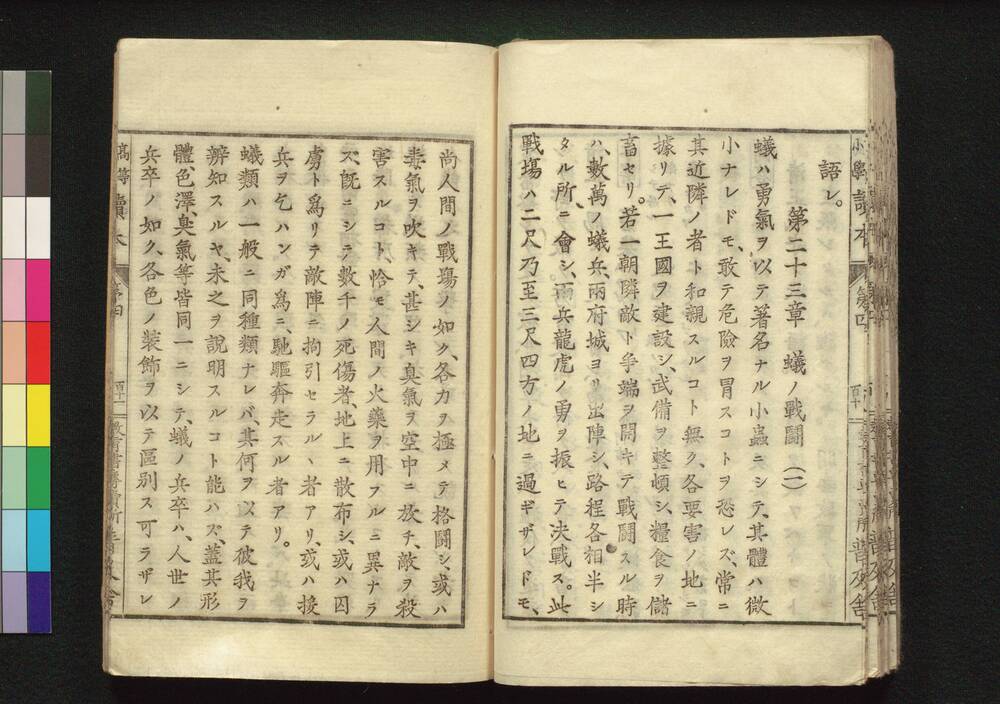 語レ。
第二十三章 蟻ノ戰鬪(一)
蟻ハ勇氣ヲ以テ著名ナル小蟲ニシテ、其體ハ微
小ナレドモ、敢テ危險ヲ冒スコトヲ恐レズ、常ニ
其近隣ノ者ト和親スルコト無ク、各要害ノ地ニ
據リテ、一王國ヲ建設シ、武備ヲ整頓シ、糧食ヲ儲
畜セリ。若一朝隣敵ト爭端ヲ開キテ戰鬪スル時
ハ、數萬ノ蟻兵、兩府城ヨリ出陣シ、路程各相半シ
タル所ニ會シ、兩兵龍虎ノ勇ヲ振ヒテ決戰ス。此
戰場ハ二尺乃至三尺四方ノ地ニ過ギザレドモ、
尚人間ノ戰場ノ如ク、各力ヲ極メテ格鬪シ、或ハ
毒氣ヲ吹キテ、甚シキ臭氣ヲ空中ニ放チ、敵ヲ殺
害スルコト、恰モ人間ノ火藥ヲ用フルニ異ナラ
ズ、旣ニシテ數千ノ死傷者、地上ニ散布シ、或ハ囚
虜ト爲リテ敵陣ニ拘引セラルヽ者アリ、或ハ援
兵ヲ乞ハンガ爲ニ、馳驅奔走スル者アリ。
蟻類ハ一般ニ同種類ナレバ、其何ヲ以テ彼我ヲ
辨知スルヤ、未之ヲ說明スルコト能ハズ、蓋其形
體色澤、臭氣等皆同一ニシテ、蟻ノ兵卒ハ、人世ノ
兵卒ノ如ク、各色ノ裝飾ヲ以テ區別ス可ラザレ
高等讀本
第四
百十一